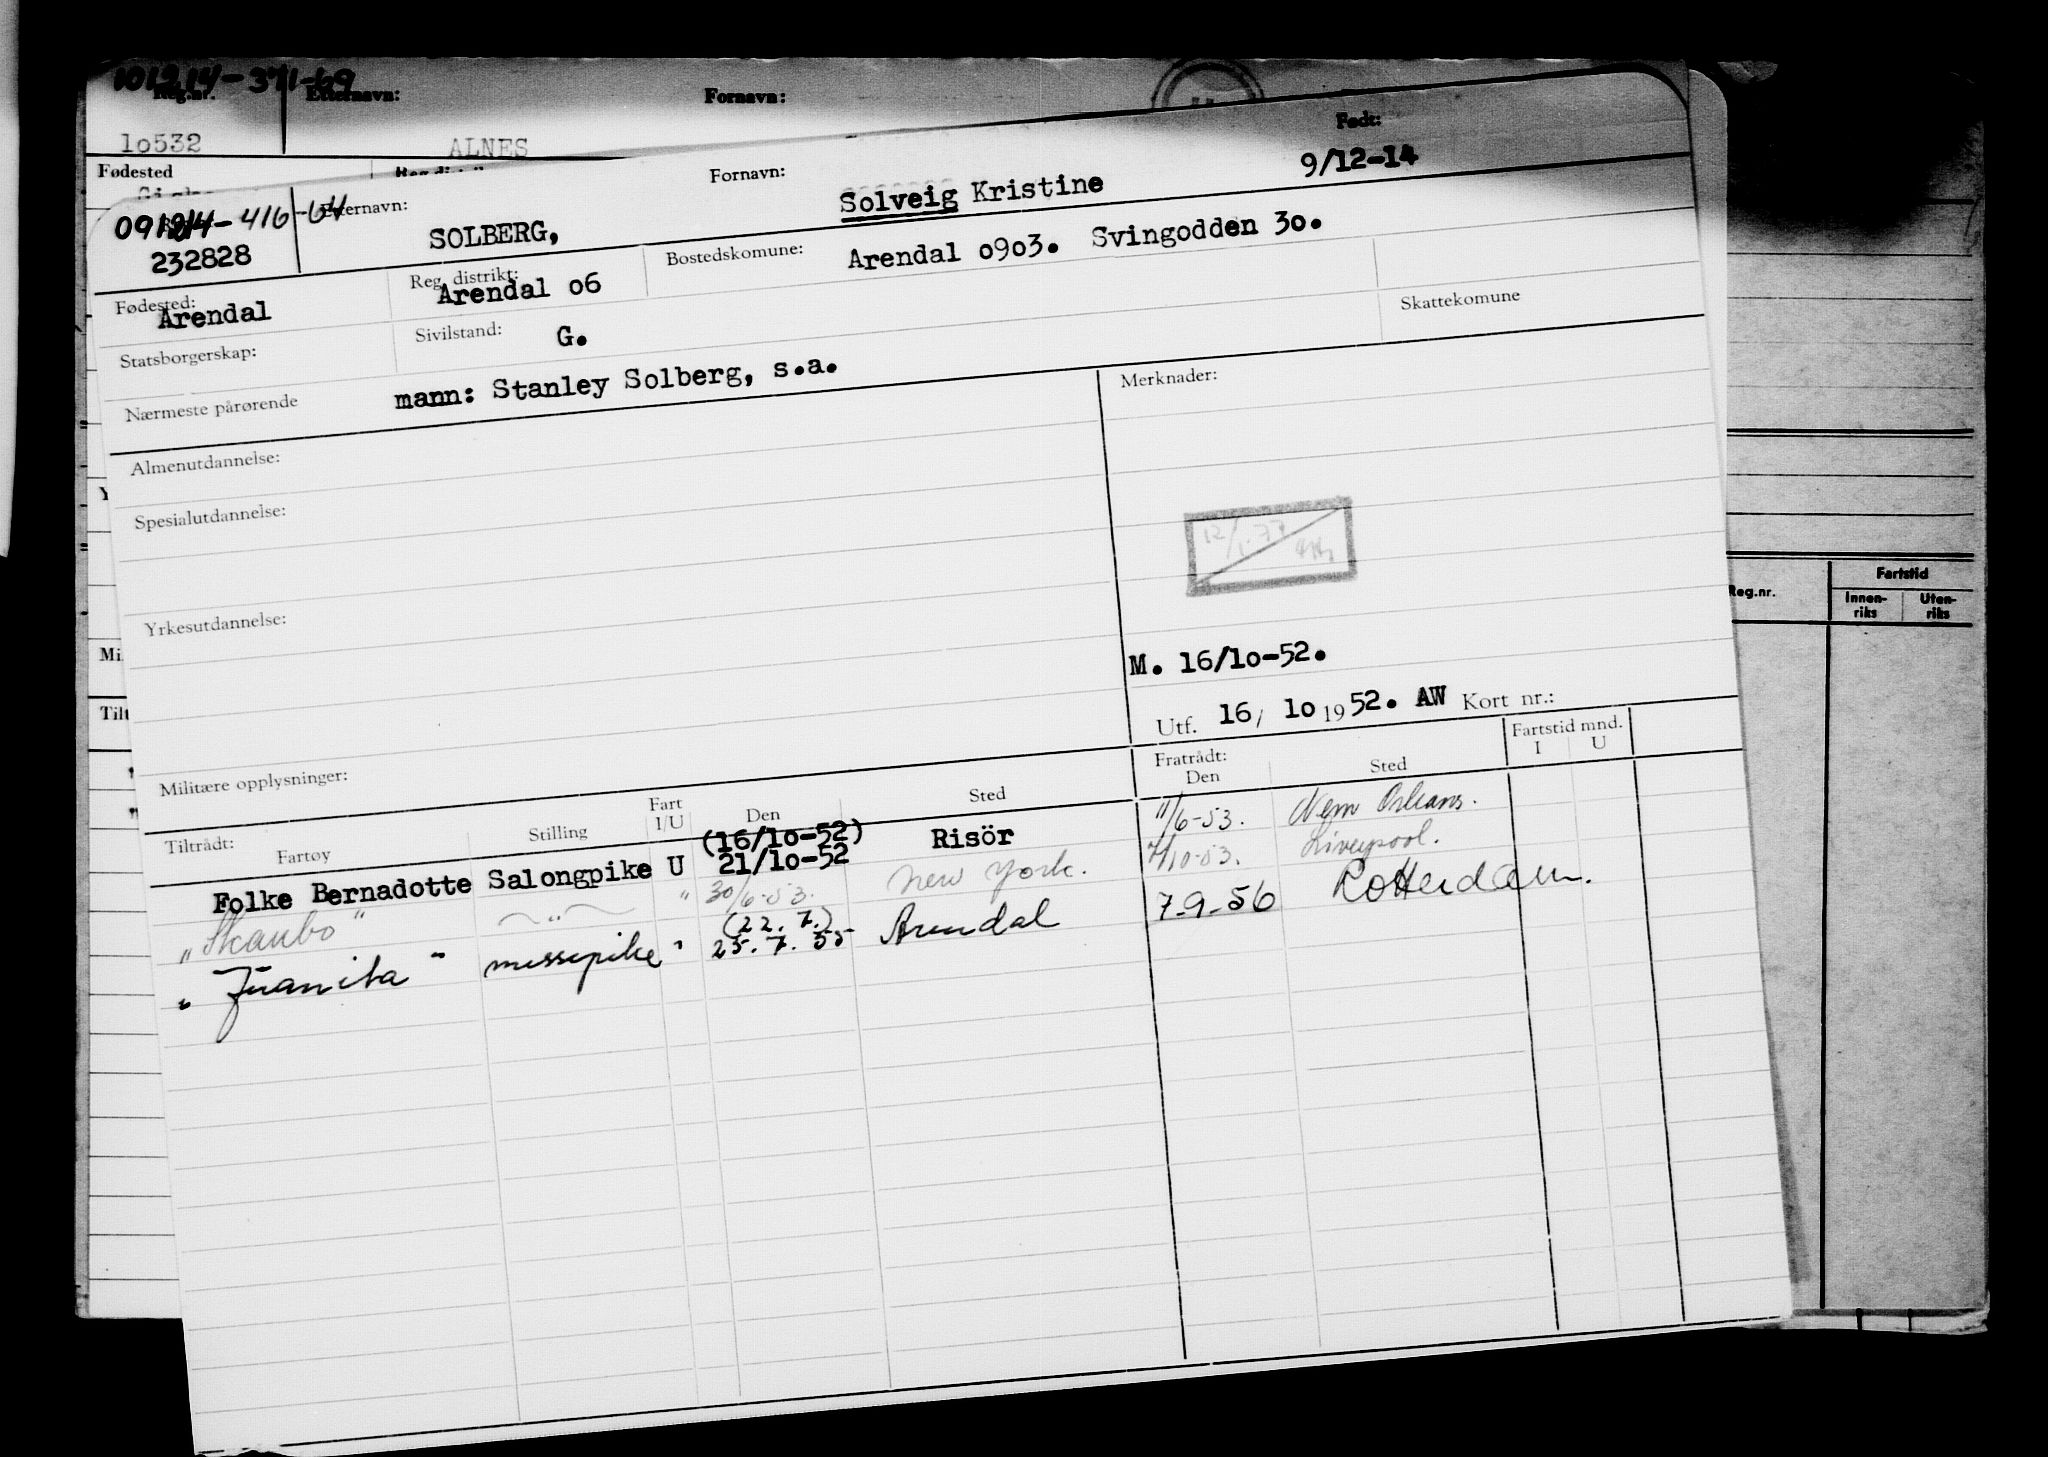 101214-371-69
Reg.nr. Etternavn: Fornavn:
10532 ALNES
Fødested
Født:
Fornavn: Solveig Kristine 9/12-14
091214-416-64 Etternavn: SOLBERG,
232828
Fødested: Arendal Reg. distrikt: Arendal o6 Bostedskomune: Arendal o9o3. Svingodden 3o.
Statsborgerskap: Sivilstand: G. Skattekomune
Nærmeste pårørende mann: Stanley Solberg, s.a.
Almenutdannelse: Merknader:
Spesialutdannelse:
Yrkesutdannelse:
M. 16/1o-52.
Utf. 16/ 1o 1952. AW Kort nr.:
Militære opplysninger:
Tiltrådt: Fartøy Stilling Fart I/U Den Sted Fratrådt: Den Sted Fartstid mnd. I U
Folke Bernadotte Salongpike U (16/1o-52) 21/1o-52 Risör 11/6-53. New Orleans.
"Skaubo" " " 30/6-53. New York. 7/10-53. Liverpool.
"Juanita" messepike " (22.7.) 25.7.55 Arendal 7-9-56 Rotterdam.
Reg.nr. Fartstid
Innen-riks Uten-riks
Mi
Tilt